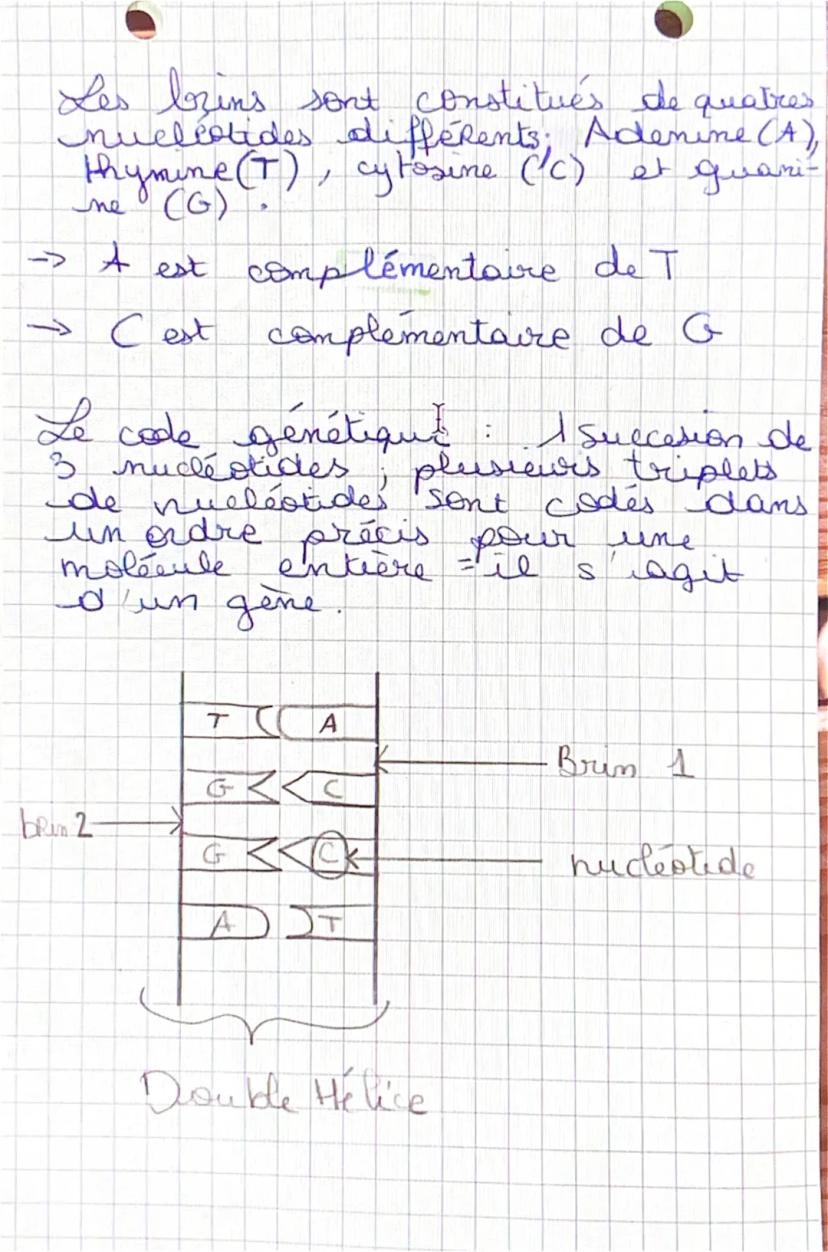 Les brins sont constitués de quatres
nucléotides différents; Adenine (A),
thymine (T), cytosine (C) et guani-
ne (G).
→ A est complémentaire de T
→ C est complémentaire de G
Le code génétique : 1 succesion de
3 nucléotides ; plusieurs triplets
de nucléotides sont codés dans
un ordre précis pour une
molécule entière = il s'agit
d'un gène.
T A
Brin 1
G C
brin 2
G C
nucléotide
A T
Double Hélice